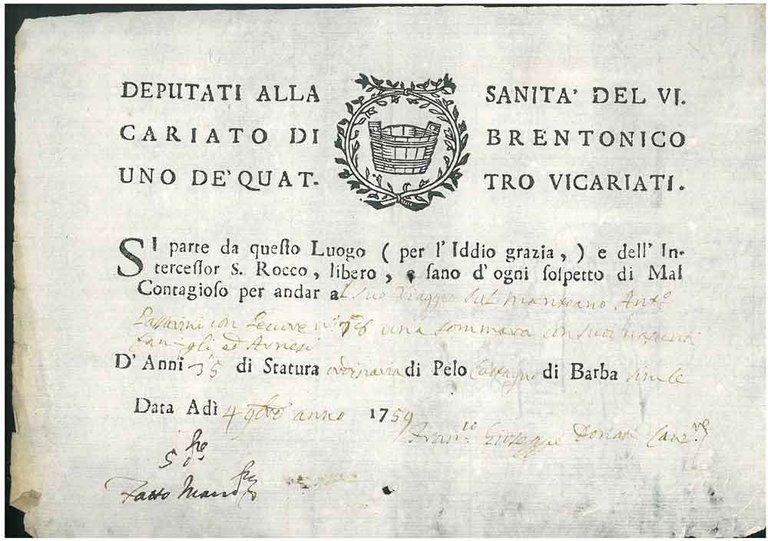 DEPUTATI ALLA SANITA' DEL VI.
CARIATO DI BRENTONICO
UNO DE' QUAT- TRO VICARIATI.
SI parte da queſto Luogo ( per l'Iddio grazia, ) e dell' In-
terceſſor S. Rocco, libero, e ſano d'ogni ſoſpetto di Mal
Contagioſo per andar al suo Viaggio sul Mantoano Ant.o
Passarini con Pecore n.o una con suoi
ed Arnesi
D' Anni 35 di Statura ordinaria di Pelo Castagno di Barba simile
Data Adì 4 9bre anno 1759
Giuseppe Donati Canz.re
5
Fatto